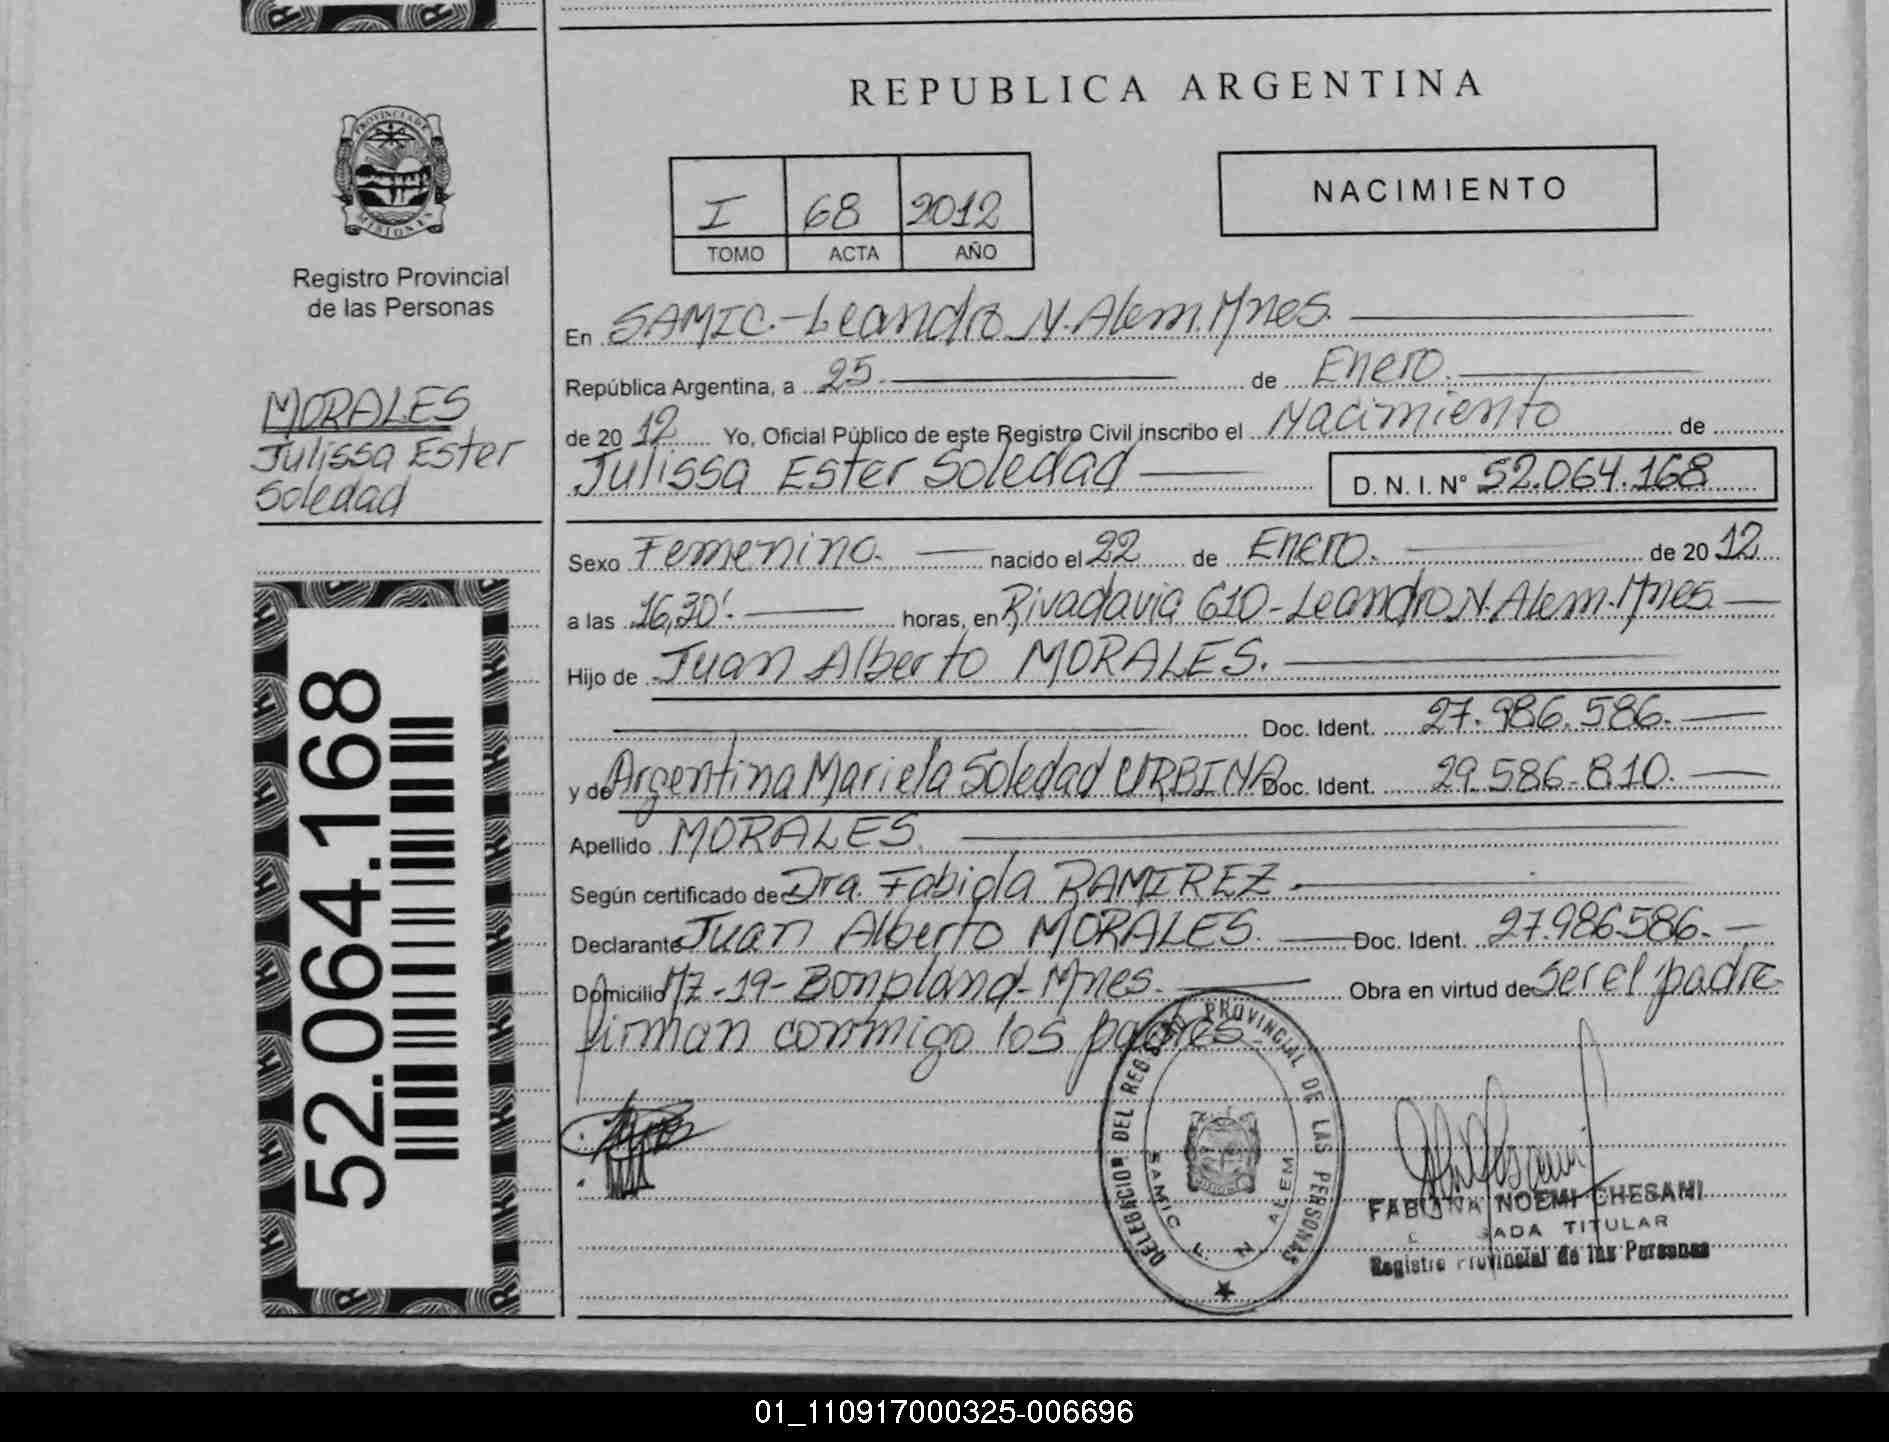 REPUBLICA ARGENTINA
PROVINCIA DE
MISIONES
Registro Provincial
de las Personas
MORALES
Julissa Ester
Soledad
52.064.168
I 68 2012
TOMO ACTA AÑO
NACIMIENTO
En SAMIC.-Leandro N. Alem. Mnes.
República Argentina, a 25. de Enero.
de 20 12 Yo, Oficial Público de este Registro Civil inscribo el Nacimiento de
Julissa Ester Soledad D. N. I. N° 52.064.168
Sexo Femenino. nacido el 22 de Enero. de 20 12
a las 16,30'. horas, en Rivadavia 610- Leandro N. Alem. Mnes.
Hijo de Juan Alberto MORALES.
Doc. Ident. 27.986.586.
y de Argentina Mariela Soledad URBINA Doc. Ident. 29.586.810.
Apellido MORALES.
Según certificado de Dra. Fabiola RAMIREZ.
Declarante Juan Alberto MORALES. Doc. Ident. 27.986586.
Domicilio Mz-19-Bonpland-Mnes. Obra en virtud de ser el padre
firman conmigo los padres
DELEGACION DEL REGISTRO PROVINCIAL DE LAS PERSONAS
SAMIC N ALEM
FABIANA NOEMI CHESANI
ADA TITULAR
Registro Provincial de las Personas
01_110917000325-006696